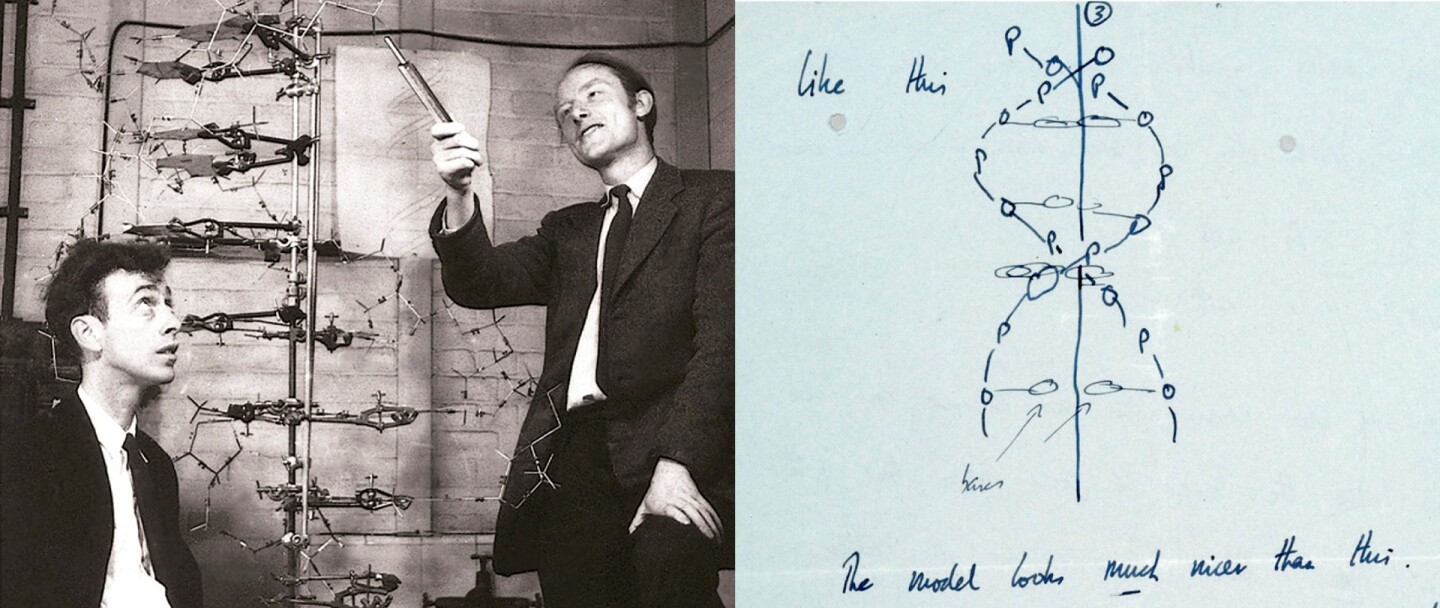 3
P
like this P P
P P
P. P
P P
bases
The model looks much nicer than this.